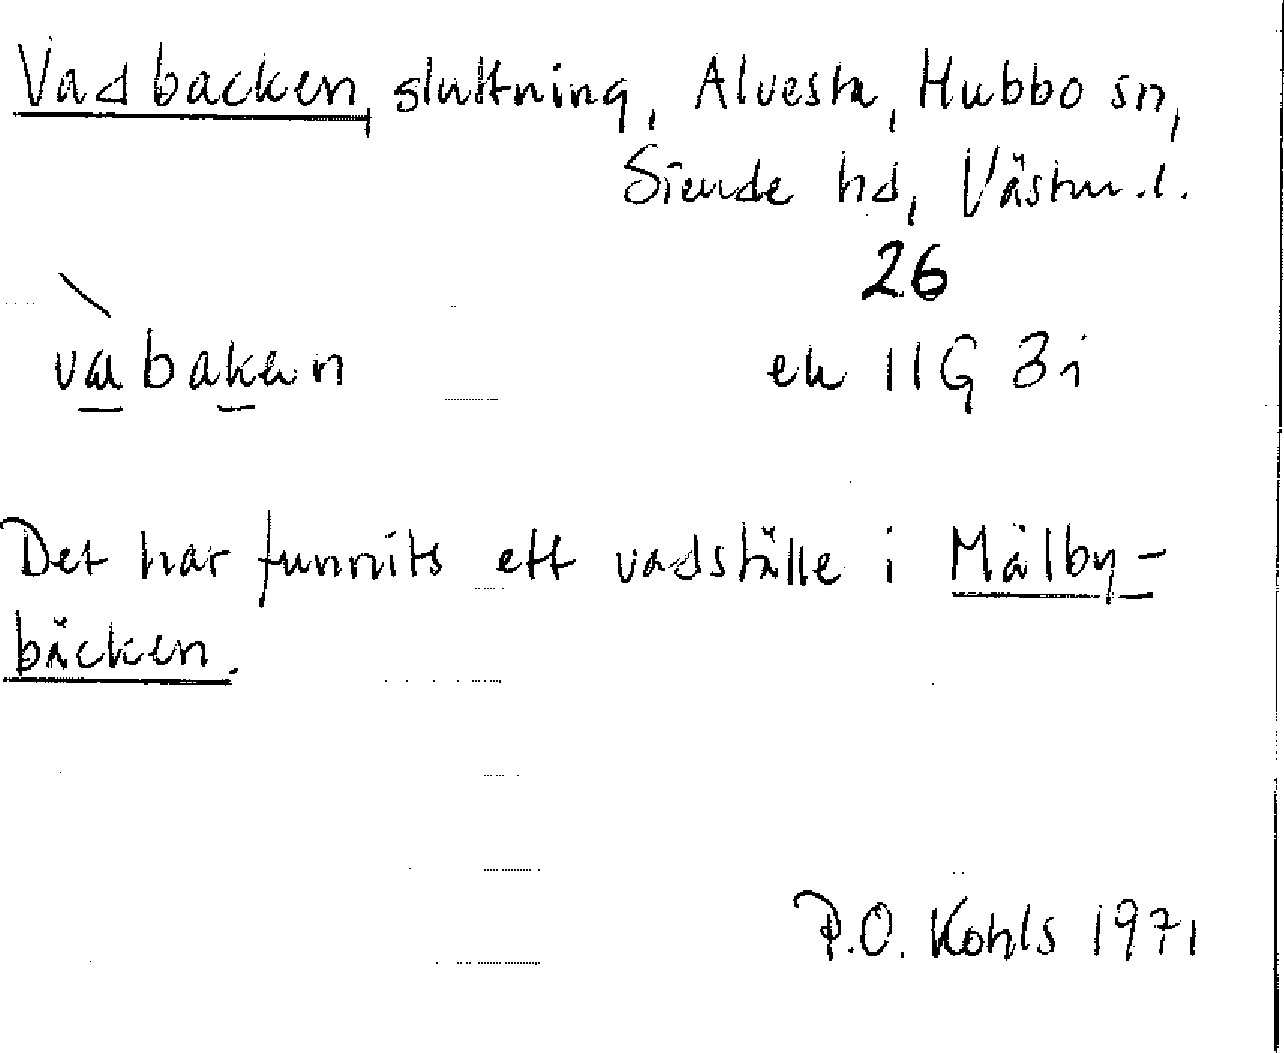 Vadbacken, sluttning, Alvesta, Hubbo sn,
Siende hd, Västm.l.
26
ek 11G 3i
Det har funnits ett vadställe i Målby-
bäcken.
P.O. Kohls 1971